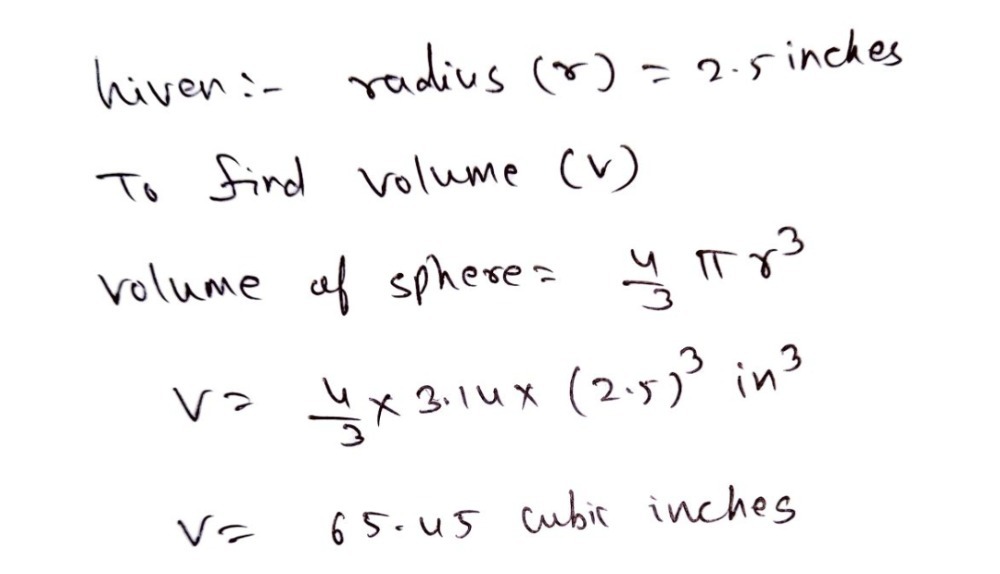 Given :- radius (r) = 2.5 inches
To find volume (v)
volume of sphere = 4/3 π r³
V = 4/3 x 3.14 x (2.5)³ in³
V = 65.45 cubic inches